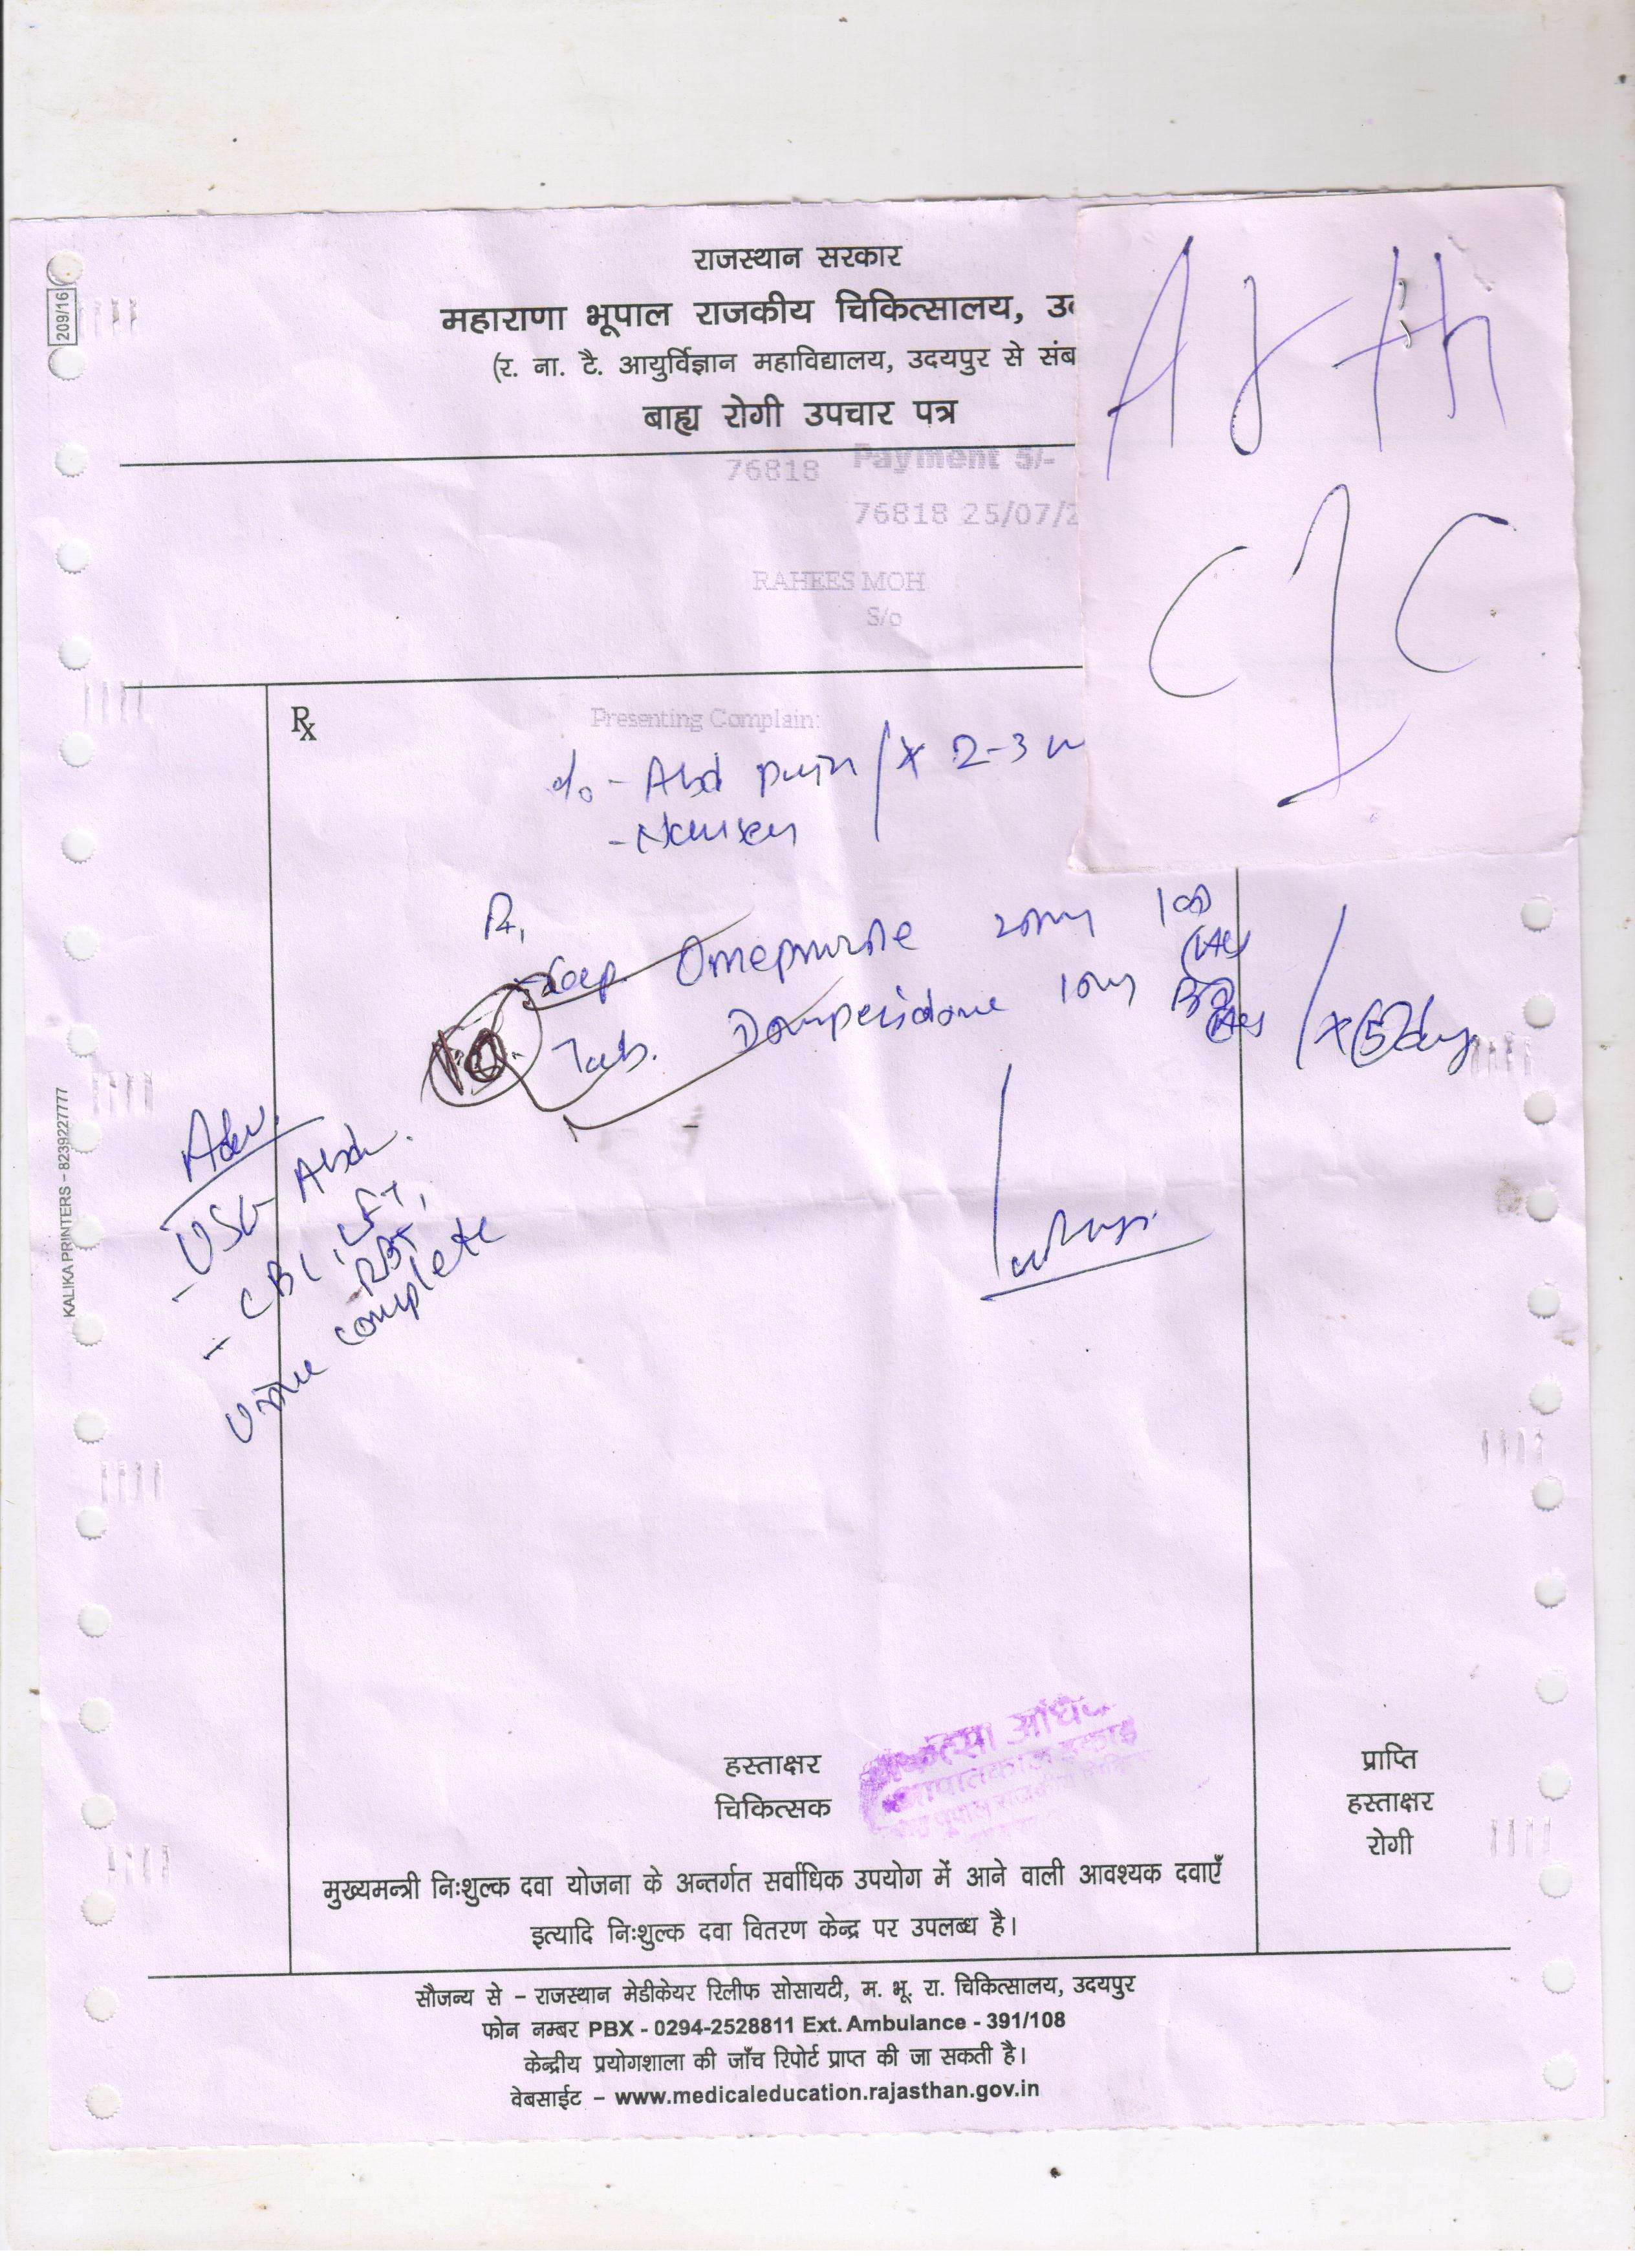 राजस्थान सरकार
महाराणा भूपाल राजकीय चिकित्सालय,
(र. ना. टै. आयुर्विज्ञान महाविद्यालय, उदयपुर से संब
बाह्य रोगी उपचार पत्र
209/16
76818 Payment 5/-
76818 25/07/2
RAHEES MOH
S/o
Rx
Presenting Complain:
c/o - Abd pain / x 2-3
- Nausea
Cap. Omeprazole 20mg
Tab. Domperidone 10mg
x 5 day
Adv.
- USG Abd.
- CBC, LFT,
RFT
Urine complete
KALIKA PRINTERS - 8239227777
हस्ताक्षर
चिकित्सक
प्राप्ति
हस्ताक्षर
रोगी
मुख्यमन्त्री निःशुल्क दवा योजना के अन्तर्गत सर्वाधिक उपयोग में आने वाली आवश्यक दवाएँ
इत्यादि निःशुल्क दवा वितरण केन्द्र पर उपलब्ध है।
सौजन्य से – राजस्थान मेडीकेयर रिलीफ सोसायटी, म. भू. रा. चिकित्सालय, उदयपुर
फोन नम्बर PBX - 0294-2528811 Ext. Ambulance - 391/108
केन्द्रीय प्रयोगशाला की जाँच रिपोर्ट प्राप्त की जा सकती है।
वेबसाईट – www.medicaleducation.rajasthan.gov.in